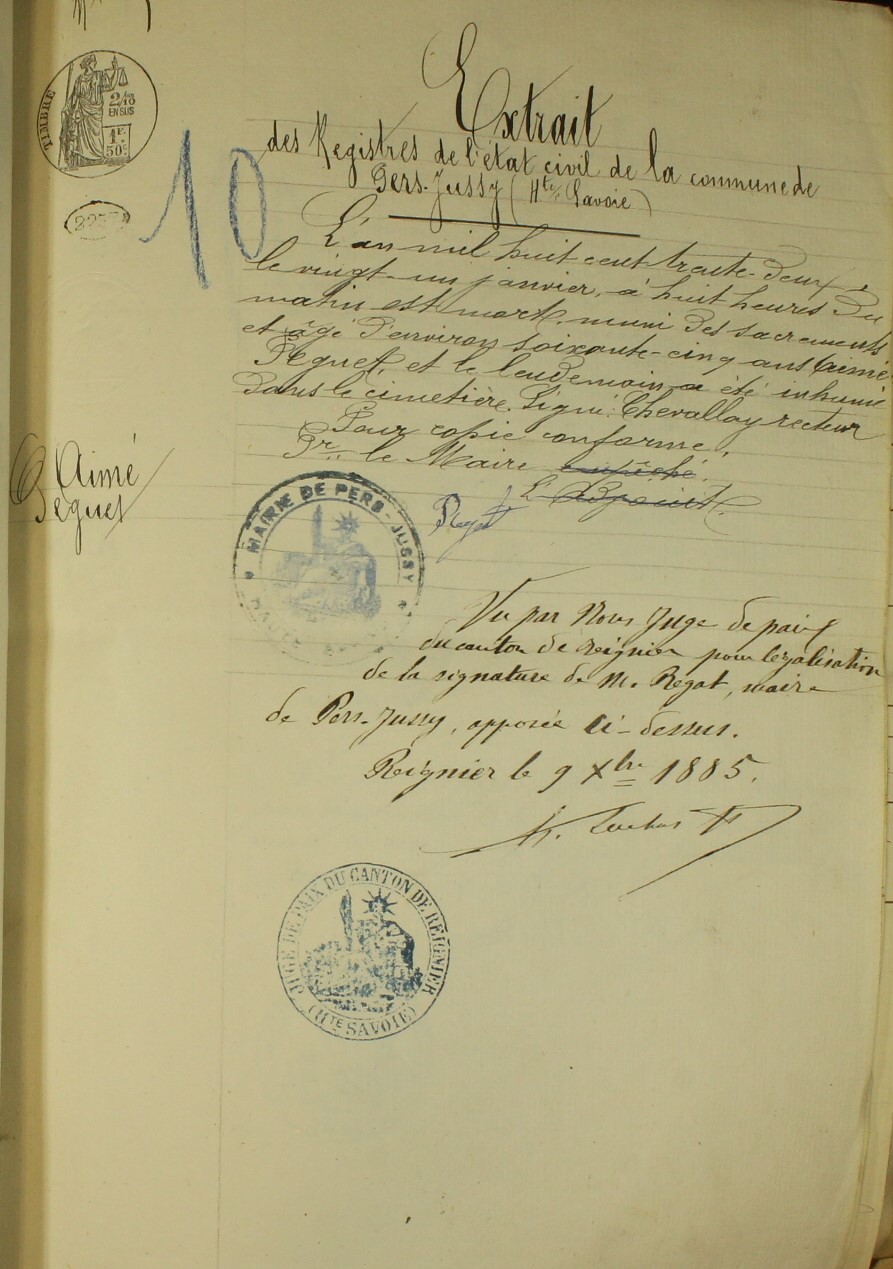 TIMBRE
2/10
EN SUS
1F.
50c.
10
Extrait
des Registres de l'état civil de la commune de
Pers-Jussy (Hte Savoie)
L'an mil huit cent trente-deux,
le vingt-un janvier, à huit heures du
matin est mort, muni des sacrements
et âgé d'environ soixante-cinq ans Aimé
Peguet, et le lendemain a été inhumé
dans le cimetière. Signé: Chevallay recteur
Pour copie conforme,
Pr. le Maire empêché.
L'Adjoint
Aimé
Peguet
MAIRIE DE PERS-JUSSY
HAUTE
Vu par Nous Juge de paix
du canton de Reignier pour légalisation
de la signature de M. Regat, maire
de Pers-Jussy, apposée ci-dessus.
Reignier le 9 Xbre 1885.
JUGE DE PAIX DU CANTON DE REIGNIER
(HTE SAVOIE)